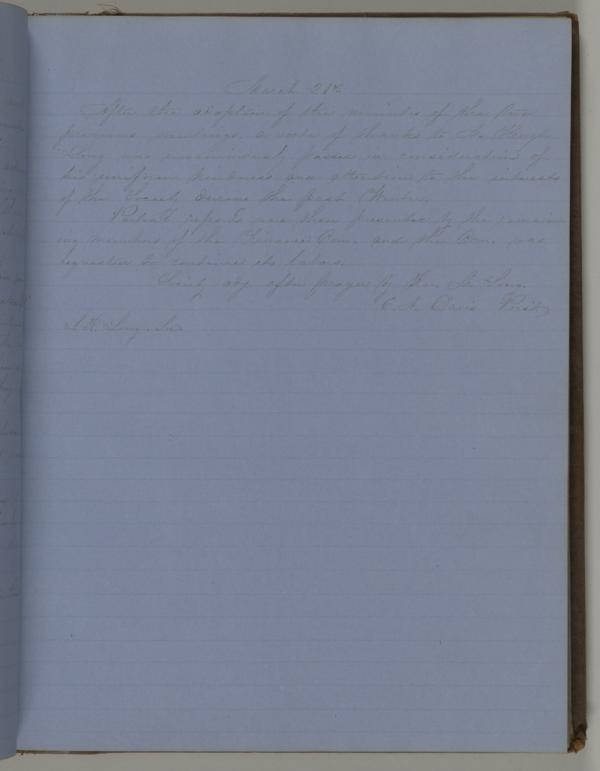 March 21st
After the adoption of the minutes of the two
previous meetings, a vote of thanks to
Long was unanimously passed in consideration of
his uniform kindness and attention to the interests
of the Society during the past Winter.
Partial reports were then presented by the remain
ing members of the Finance Com. and the Com. was
requested to continue its labors.
Society adj. after prayer by Long.
Davis Presdt
Long. Sec